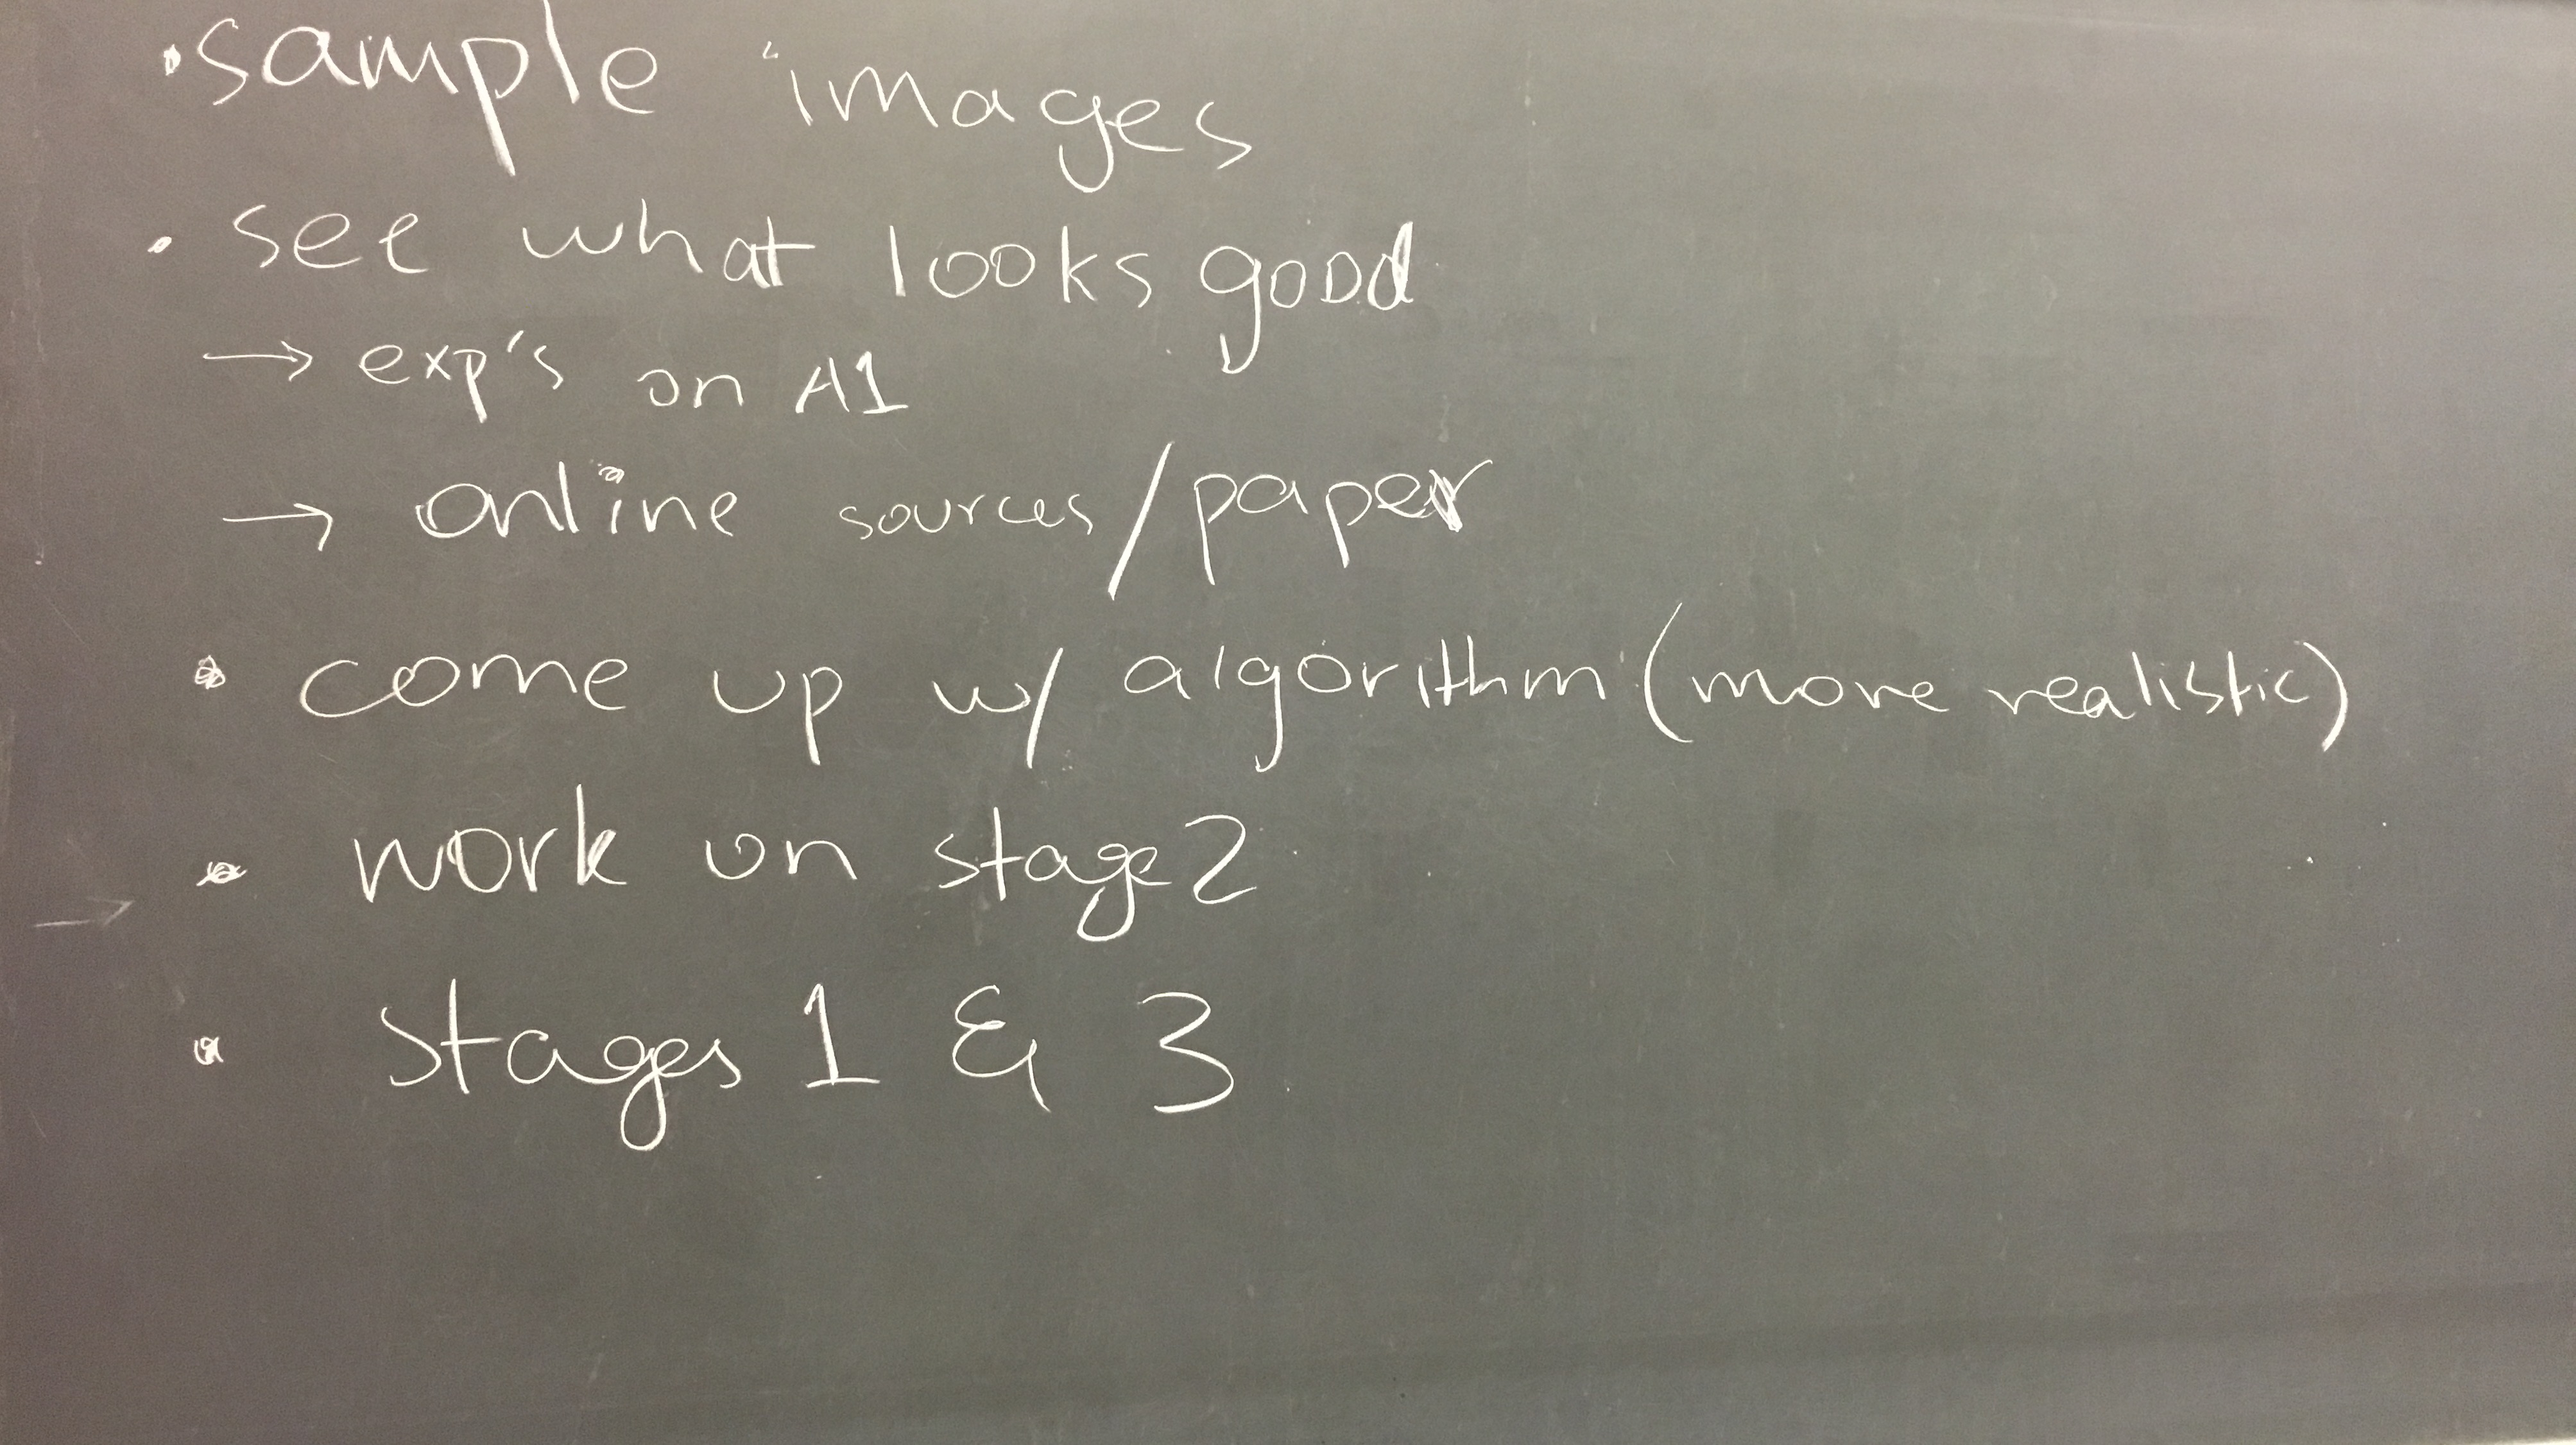 • sample images
• see what looks good
→ exp's on A1
→ online sources/paper
• come up w/ algorithm (more realistic)
• work on stage 2
→
• stages 1 & 3